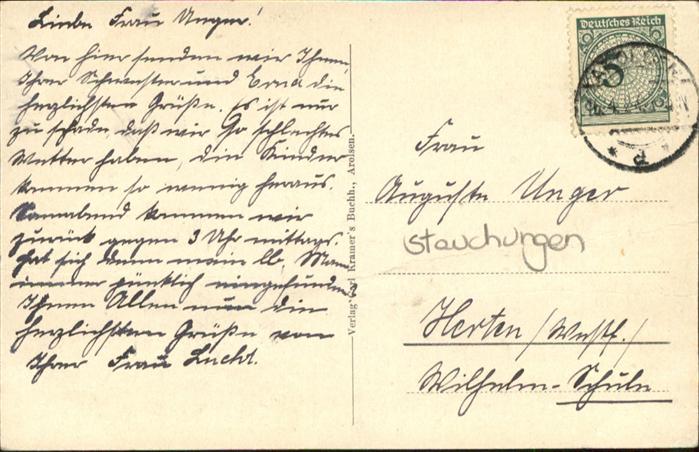 Liebe Frau Unger!
Von hier senden wir Ihnen
Ihre Schwester und Erna die
herzlichsten Grüße. Es ist nur
zu schade, daß wir so schlechtes
Wetter haben, die Kinder
kommen so wenig heraus.
Sonnabend kommen wir
zurück gegen 3 Uhr mittags.
Hat sich denn mein lb. Mann
immer pünktlich eingefunden?
Ihnen Allen nun die
herzlichsten Grüße von
Ihrer Frau Lucht.
Verlag Carl Kramer's Buchh., Arolsen.
Deutsches Reich
5
Frau
Auguste Unger
Stauchungen
Herten / Westf. /
Wilhelm-Schule